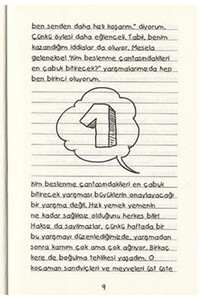 ben senden daha hızlı koşarım." diyorum.
Çünkü öylesi daha eğlenceli. Tabii, benim
kazandığım iddialar da oluyor. Mesela
geleneksel "Kim beslenme çantasındakileri
en çabuk bitirecek?" yarışmalarında hep
ben birinci oluyorum.
1
Kim beslenme çantasındakileri en çabuk
bitirecek yarışması büyüklerin onaylayacağı
bir yarışma değil. Hızlı yemek yemenin
ne kadar sağlıksız olduğunu herkes bilir!
Haksız da sayılmazlar, çünkü haftada bir
bu yarışmayı düzenlediğimizde, yarışmadan
sonra karnım çok ama çok ağrıyor. Birkaç
kere de boğulma tehlikesi yaşadım. O
kocaman sandviçleri ve meyveleri üst üste
9